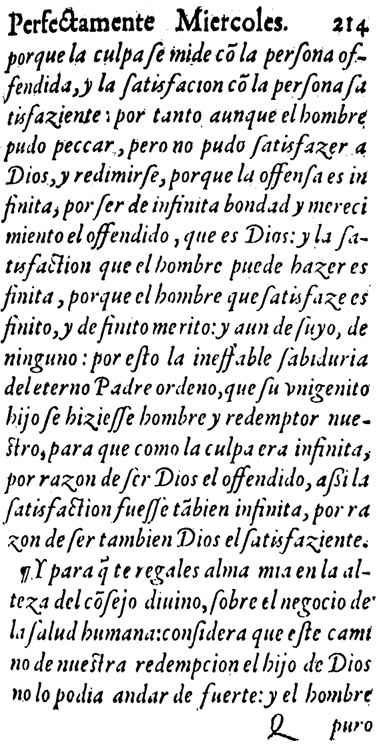 Perfectamente Miercoles. 214
porque la culpa ſe mide cõ la perſona of-
fendida, y la ſatisfacion cõ la perſona ſa
tisfaziente: por tanto aunque el hombre
pudo peccar, pero no pudo ſatisfazer a
Dios, y redimirſe, porque la offenſa es in
finita, por ſer de infinita bondad y mereci
miento el offendido, que es Dios: y la ſa-
tisfaction que el hombre puede hazer es
finita, porque el hombre que ſatisfaze es
finito, y de finito merito: y aun de ſuyo, de
ninguno: por eſto la ineffable ſabiduria
del eterno Padre ordeno, que ſu vnigenito
hijo ſe hizieſſe hombre y redemptor nue-
ſtro, para que como la culpa era infinita,
por razon de ſer Dios el offendido, aſſi la
ſatisfaction fueſſe tãbien infinita, por ra
zon de ſer tambien Dios el ſatisfaziente.
¶ Y para q̃ te regales alma mia en la al-
teza del cõſejo diuino, ſobre el negocio de
la ſalud humana: conſidera que eſte cami
no de nueſtra redempcion el hijo de Dios
no lo podia andar de fuerte: y el hombre
Q puro